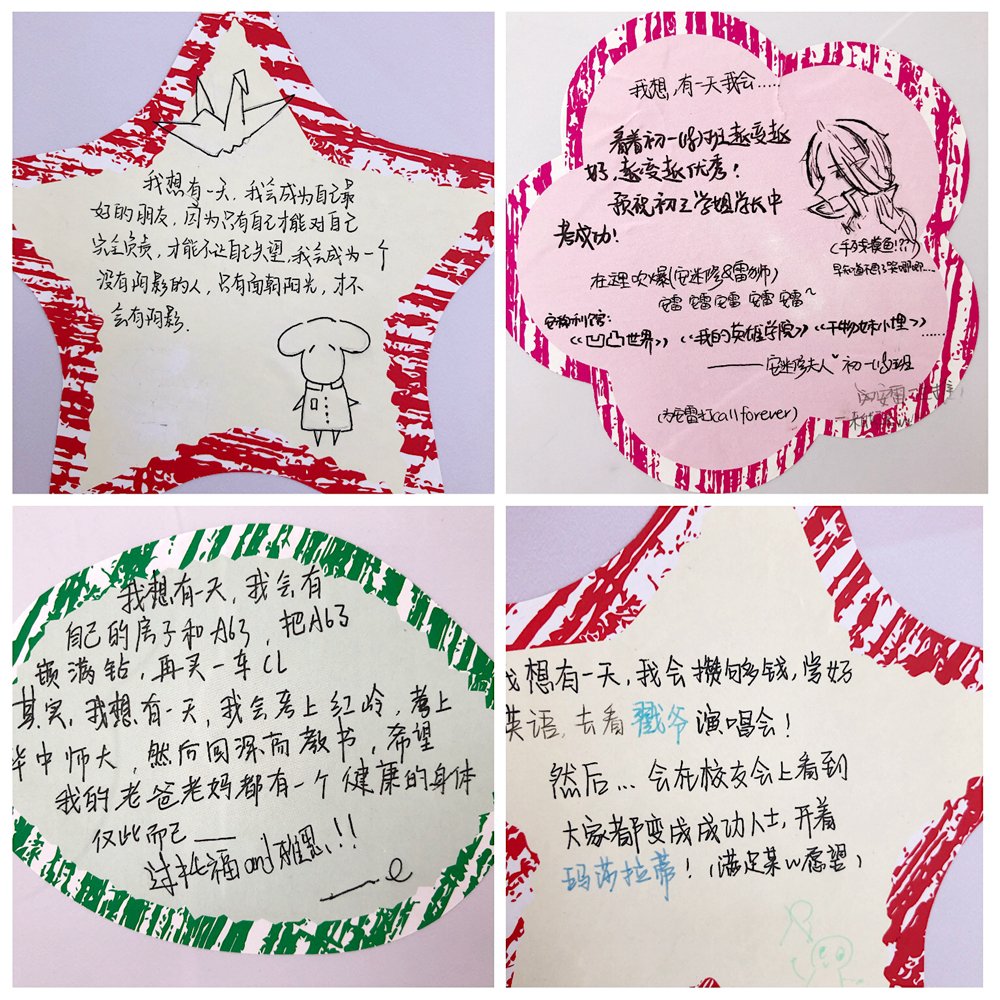 我想有一天，我会成为自己最
好的朋友，因为只有自己才能对自己
完全负责，才能不让自己失望，我会成为一个
没有阴影的人，只有面朝阳光，才不
会有阴影.
我想，有一天我会……
看着初一(4)班越变越
好，越变越优秀！
预祝初三学姐学长中
考成功！
(千万表摸鱼!??)
在这里吹爆(安迷修&雷狮)
安雷 安雷 安雷 安雷 安雷~
安利:
《凹凸世界》《我的英雄学院》《干物妹小埋》……
——安迷修夫人 初一(4)班
(为安雷打call forever)
我想有一天，我会有
自己的房子和A63，把A63
镶满钻，再买一车CL
其实，我想有一天，我会考上红岭，考上
华中师大，然后回深高教书，希望
我的老爸老妈都有一个健康的身体
仅此而已——
我想有一天，我会攒够钱，学好
英语，去看戳爷演唱会！
然后… 会在校友会上看到
大家都变成成功人士，开着
玛莎拉蒂！(满足某w愿望)